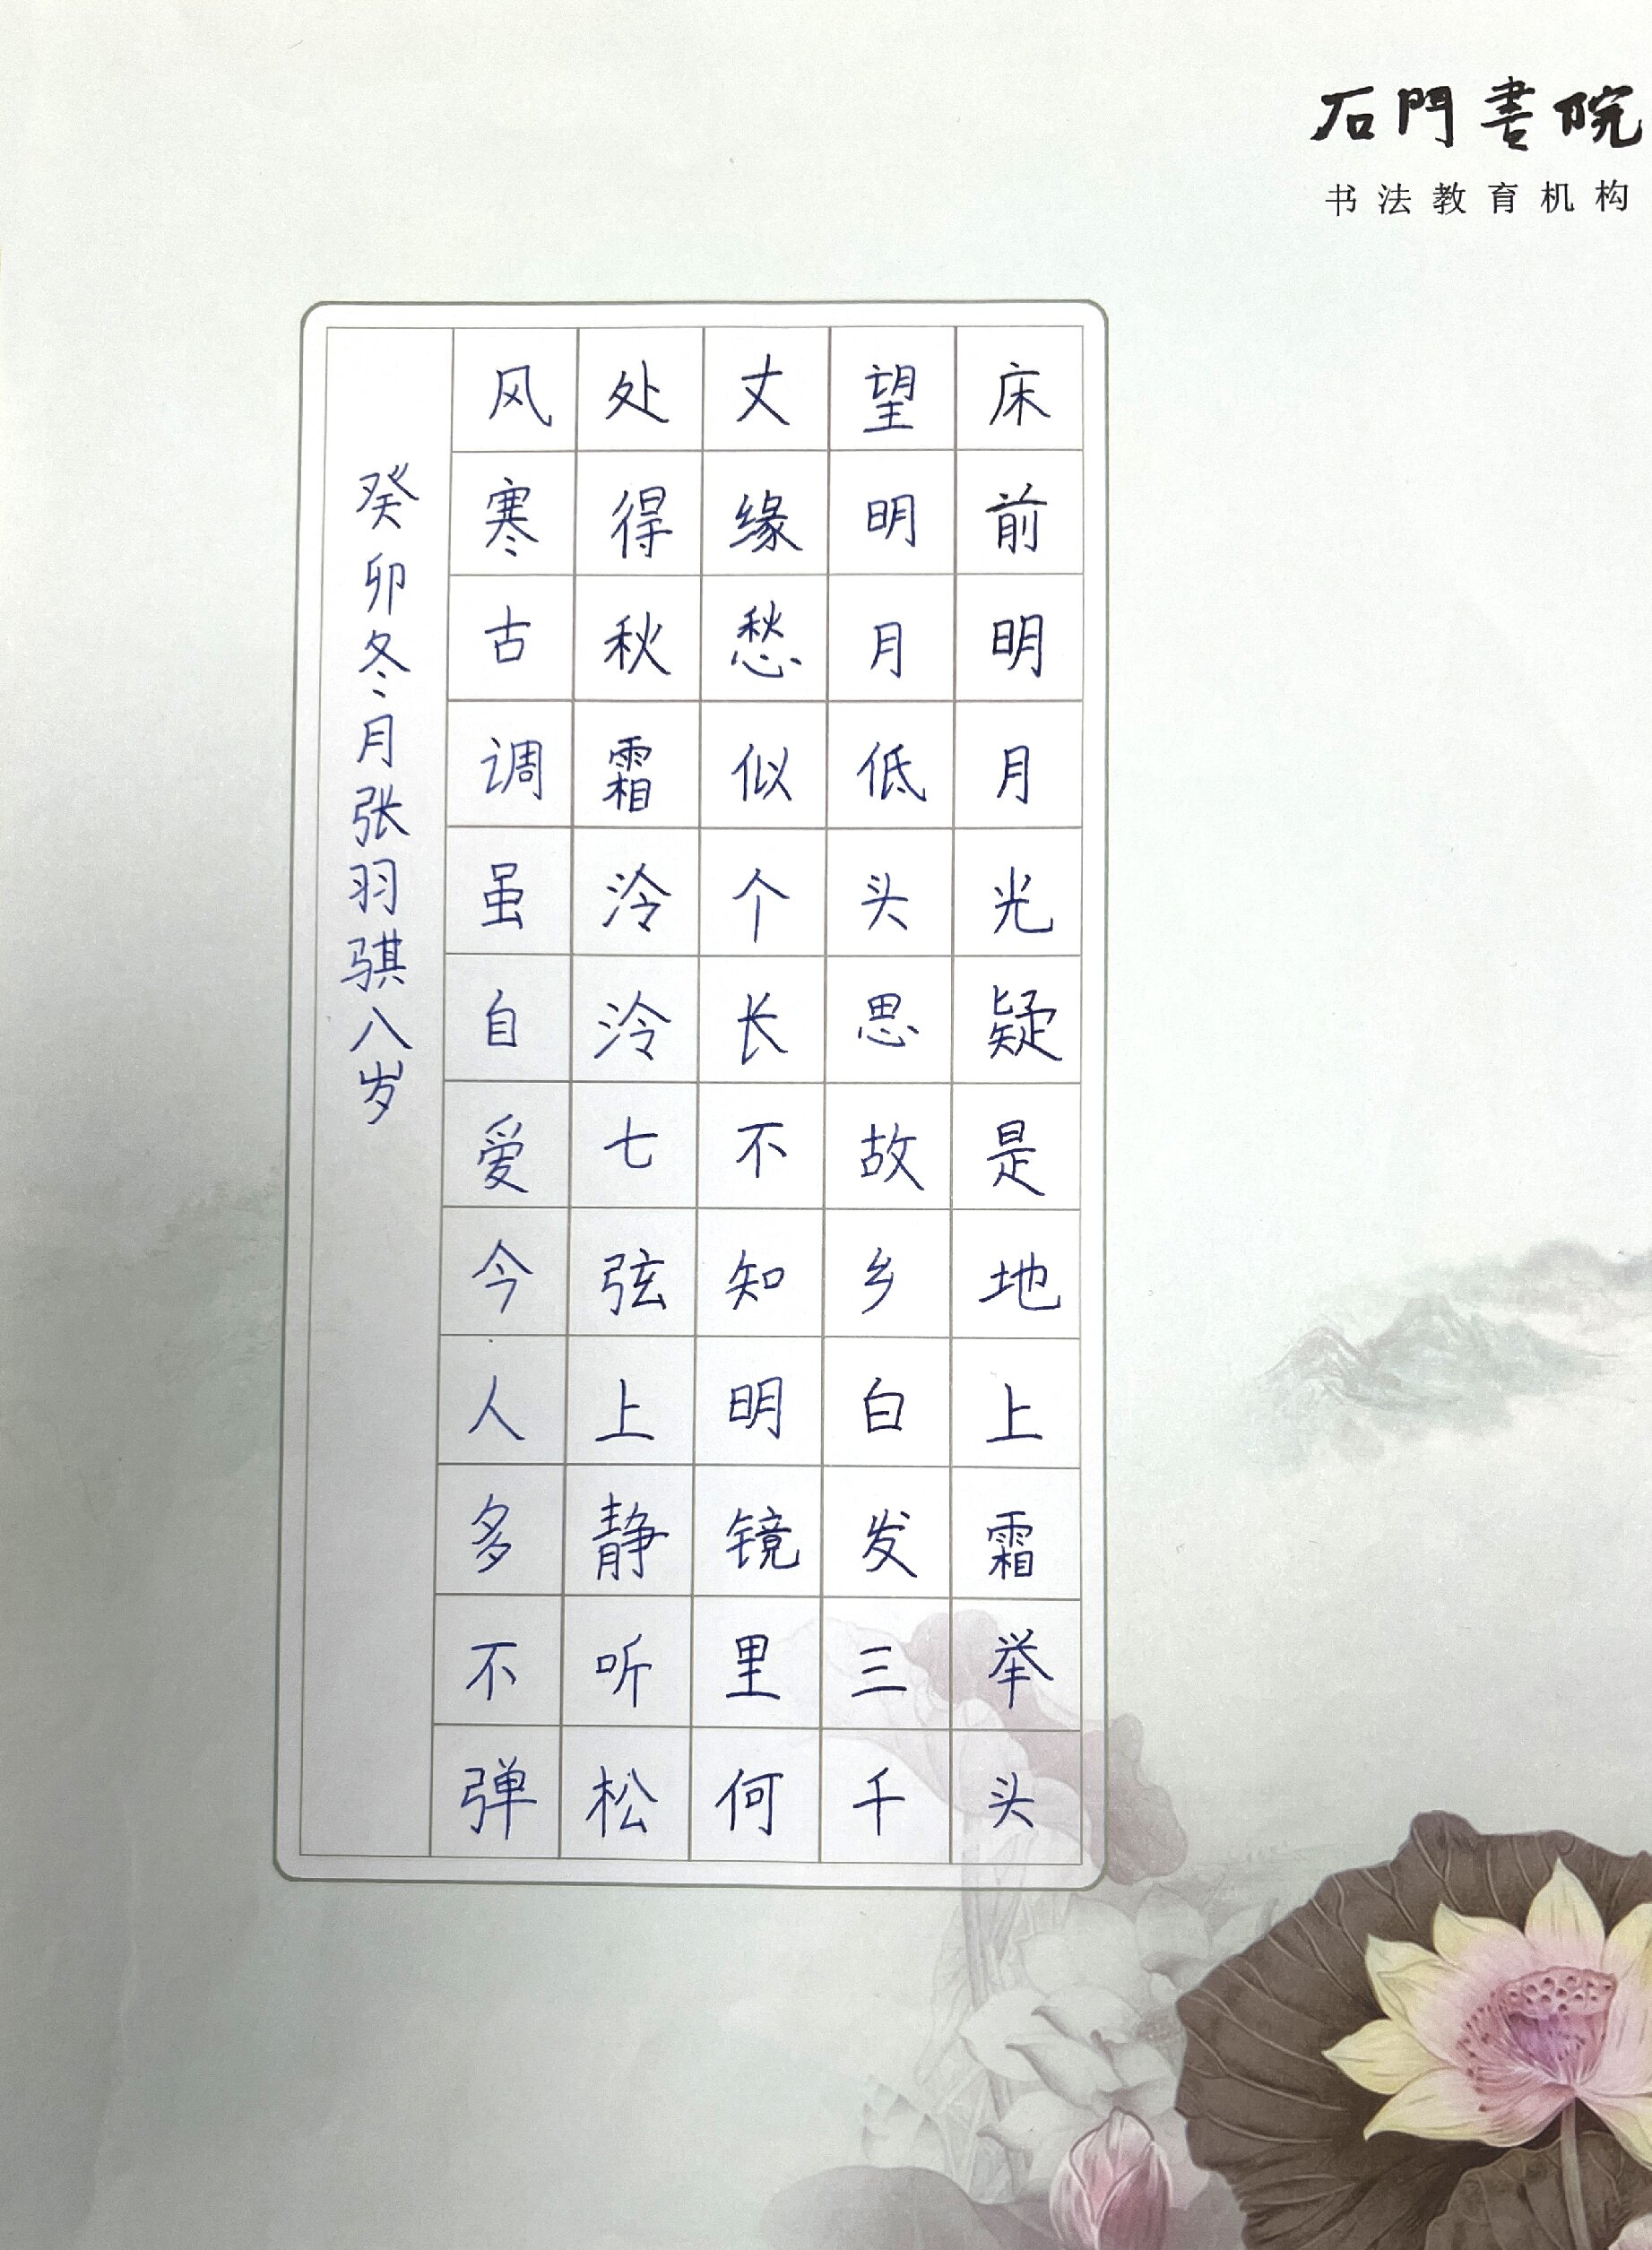 石門書院
书法教育机构
床前明月光疑是地上霜举头
望明月低头思故乡白发三千
丈缘愁似个长不知明镜里何
处得秋霜泠泠七弦上静听松
风寒古调虽自爱今人多不弹
癸卯冬月张羽骐八岁